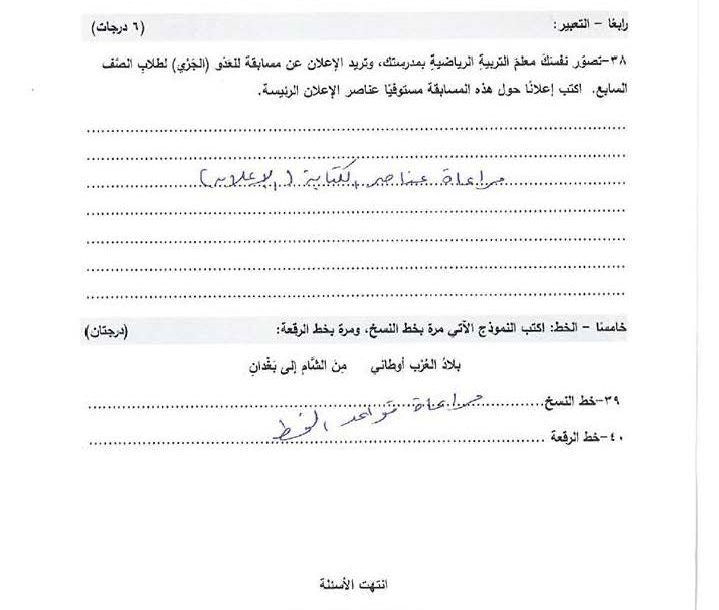 رابعًا – التعبير: (٦ درجات)
٣٨-تصوَّر نفْسَكَ معلمَ التربيةِ الرياضيةِ بمدرستك، وتريد الإعلان عن مسابقة للعدْو (الجَرْي) لطلاب الصَّف
السابع. اكتب إعلانًا حول هذه المسابقة مستوفيًا عناصر الإعلان الرئيسة.
................................................
................................................
مراعاة عناصر كتابة (الإعلان)
................................................
................................................
................................................
................................................
خامسًا – الخط: اكتب النموذج الآتي مرة بخط النسخ، ومرة بخط الرقعة: (درجتان)
بلادُ العُرْب أوطاني مِنَ الشَّام إلى بَغْدانِ
٣٩-خط النسخ مراعاة قواعد الخط
٤٠-خط الرقعة ................................................
انتهت الأسئلة